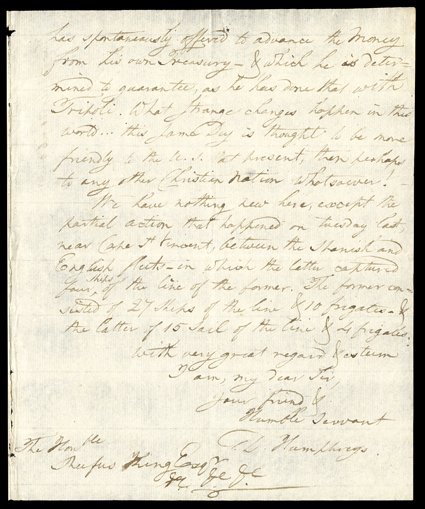 has spontaneously offered to advance the money
from his own Treasury – & which he is deter-
mined to guarantee, as he has done that with
Tripoli. What strange changes happen in this
world... this same Dey is thought to be more
friendly to the U.S. at present, then perhaps
to any other Christian Nation whatsoever! –
We have nothing new here, except the
partial action that happened on tuesday last,
near Cape St Vincent, between the Spanish and
English fleets – in which the latter captured
four ships of the line of the former. The former con-
sisted of 27 Ships of the line & 10 frigates – &
the latter of 15 Sail of the line & 4 frigates.
With very great regard & esteem
I am, my dear Sir,
Your friend &
Humble Servant
D. Humphreys.
The Honble
Rufus King Esqr
&c &c &c